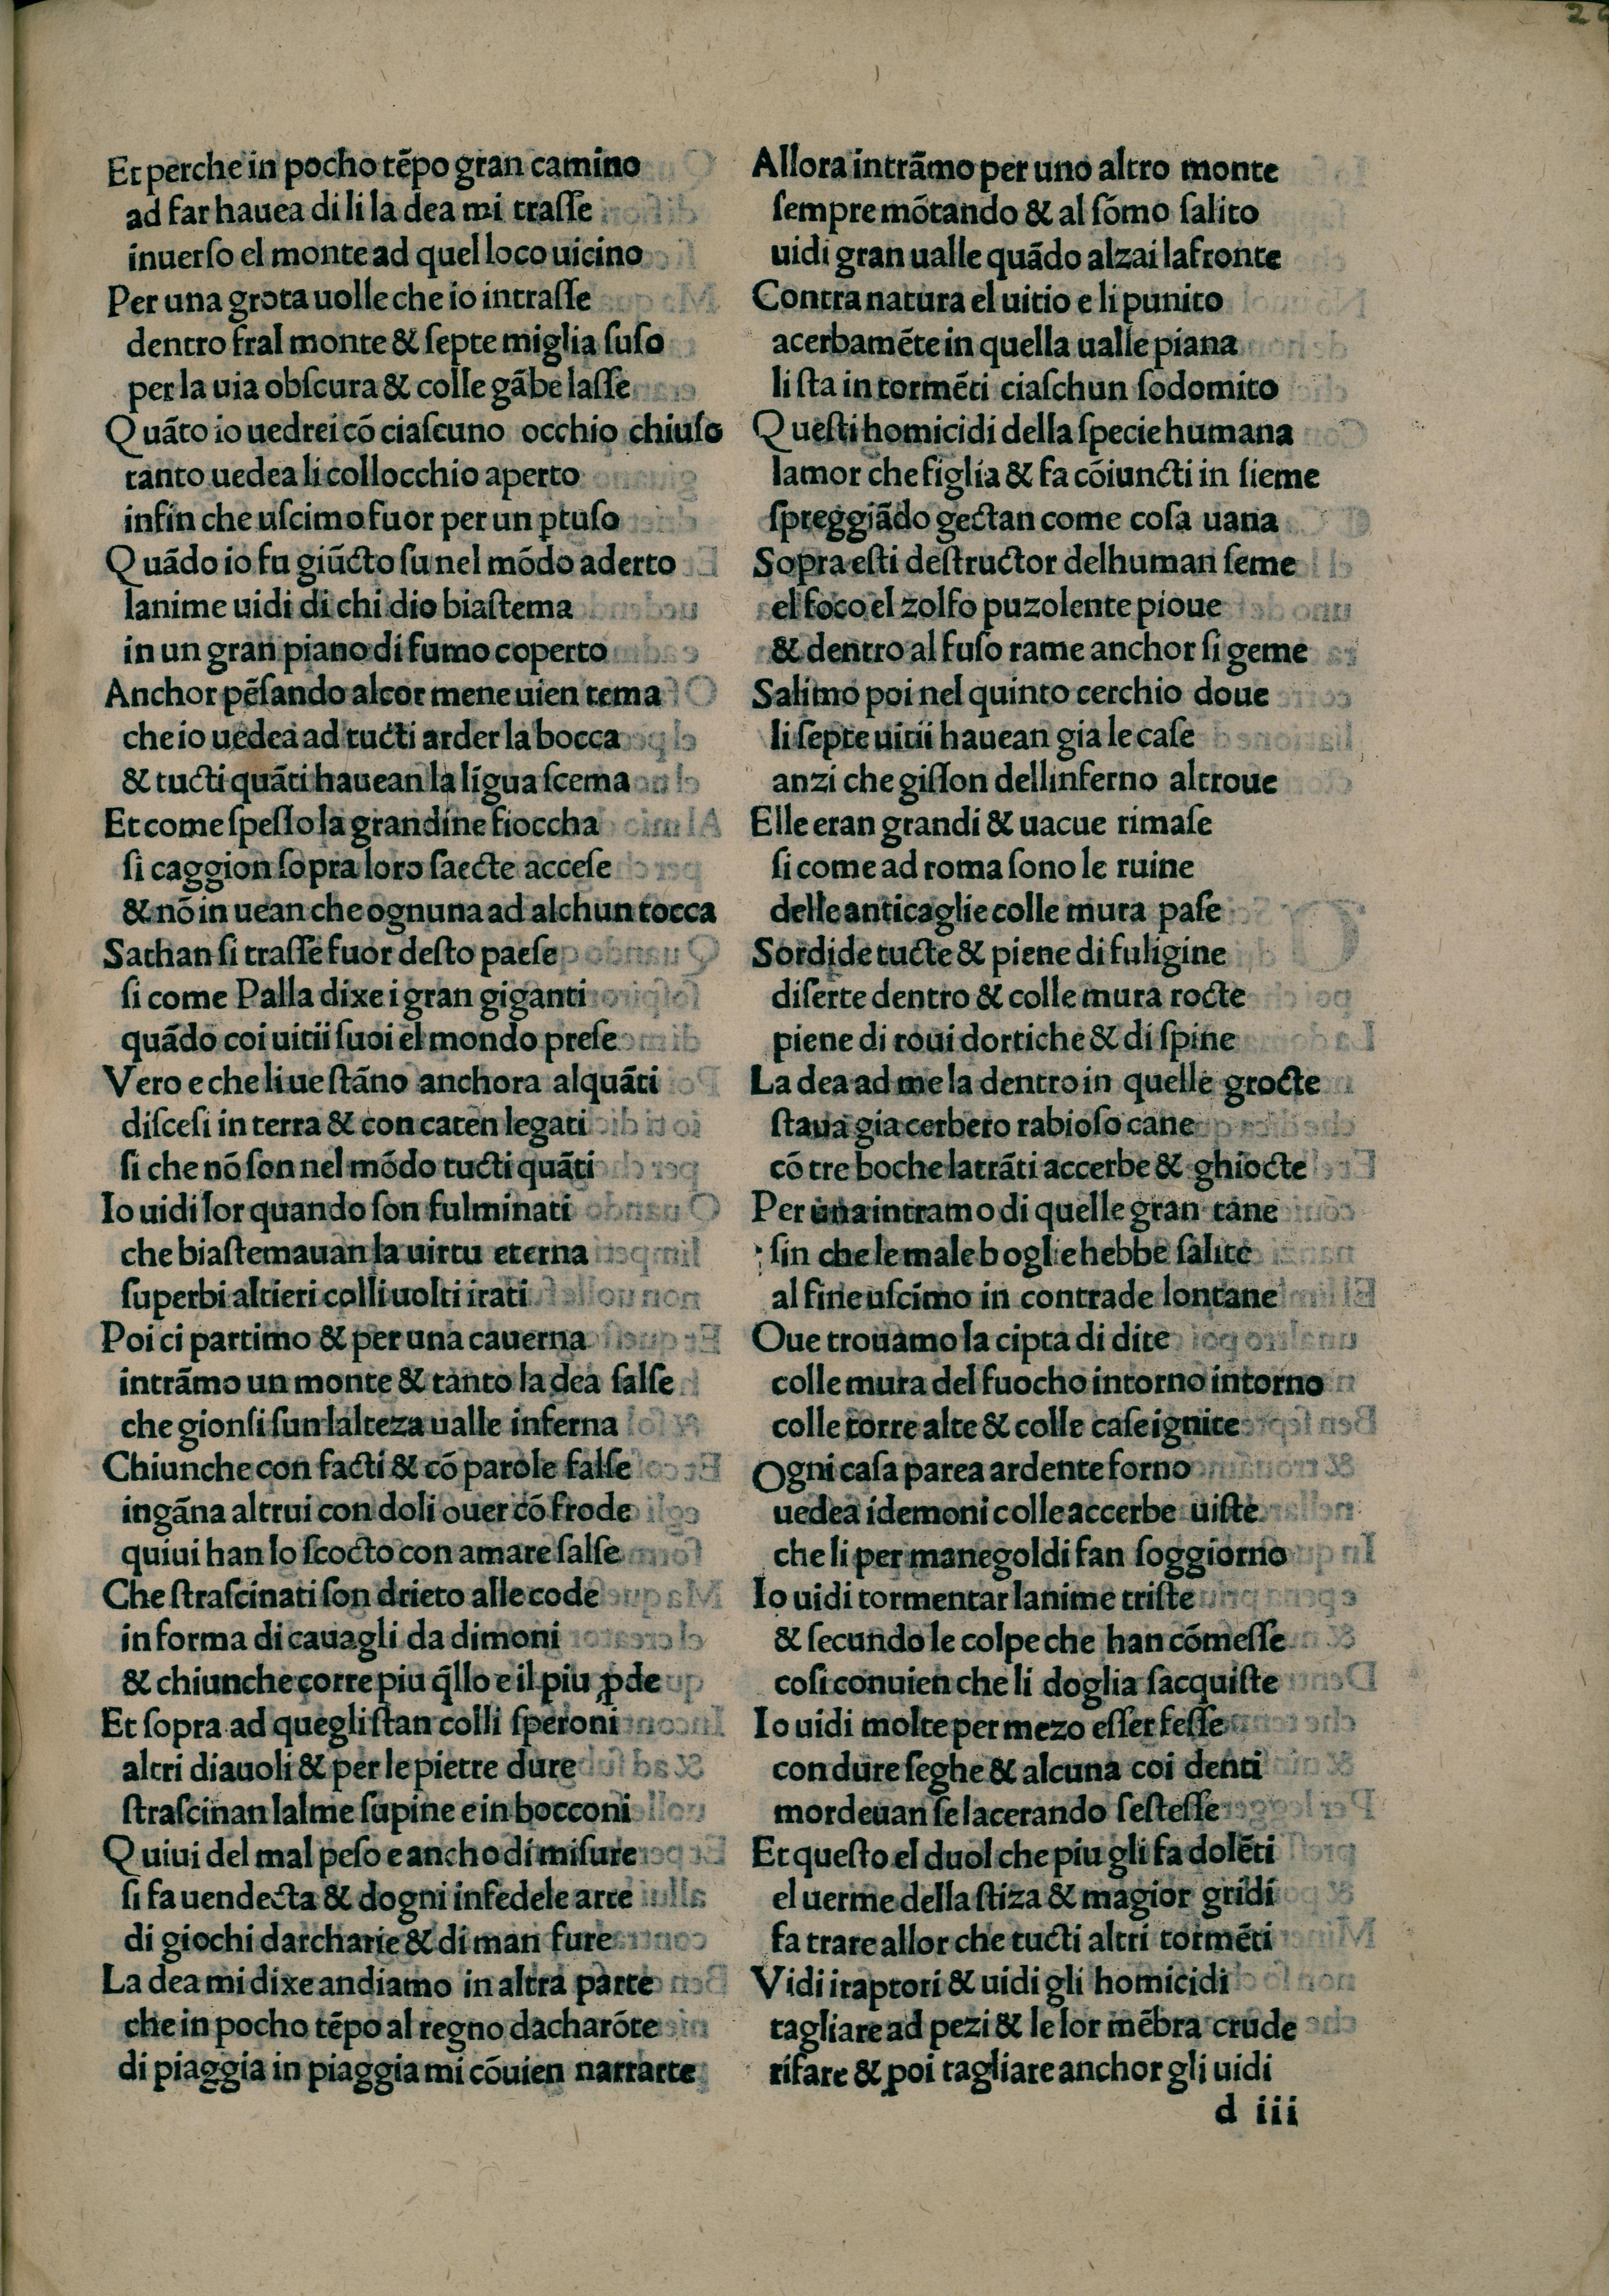 Et perche in pocho tẽpo gran camino
ad far hauea di li la dea mi traſſe
inuerſo el monte ad quel loco uicino
Per una grota uolle che io intraſſe
dentro fral monte & ſepte miglia ſuſo
per la uia obſcura & colle gãbe laſſe
Quãto io uedrei cõ ciaſcuno occhio chiuſo
tanto uedea li collocchio aperto
infin che uſcimo fuor per un ꝑtuſo
Quãdo io fu giũcto ſu nel mõdo aderto
lanime uidi di chi dio biaſtema
in un gran piano di fumo coperto
Anchor pẽſando al cor mene uien tema
che io uedea ad tucti arder la bocca
& tucti quãti hauean la lĩgua ſcema
Et come ſpeſſo la grandine fioccha
ſi caggion ſopra loro ſaecte acceſe
& nõ in uean che ognuna ad alchun tocca
Sathan ſi traſſe fuor deſto paeſe
ſi come Palla dixe i gran giganti
quãdo coi uitii ſuoi el mondo preſe
Vero e che li ue ſtãno anchora alquãti
diſceſi in terra & con caten legati
ſi che nõ ſon nel mõdo tucti quãti
Io uidi lor quando ſon fulminati
che biaſtemauan la uirtu eterna
ſuperbi altieri colli uolti irati
Poi ci partimo & per una cauerna
intrãmo un monte & tanto la dea ſalſe
che gionſi ſun lalteza ualle inferna
Chiunche con facti & cõ parole falſe
ingãna altrui con doli ouer cõ frode
quiui han lo ſcocto con amare ſalſe
Che ſtraſcinati ſon drieto alle code
in forma di cauagli da dimoni
& chiunche corre piu q̃llo e il piu ꝓde
Et ſopra ad quegli ſtan colli ſperoni
altri diauoli & per le pietre dure
ſtraſcinan lalme ſupine e in bocconi
Quiui del mal peſo e ancho di miſure
ſi fa uendecta & dogni infedele arte
di giochi darcharie & di man fure
La dea mi dixe andiamo in altra parte
che in pocho tẽpo al regno dacharõte
di piaggia in piaggia mi cõuien narrarte
Allora intrãmo per uno altro monte
ſempre mõtando & al ſõmo ſalito
uidi gran ualle quãdo alzai lafronte
Contra natura el uitio e li punito
acerbamẽte in quella ualle piana
li ſta in tormẽti ciaſchun ſodomito
Queſti homicidi della ſpecie humana
lamor che figlia & fa cõiuncti in ſieme
ſpreggiãdo gectan come coſa uana
Sopra eſti deſtructor delhuman ſeme
el foco el zolfo puzolente pioue
& dentro al fuſo rame anchor ſi geme
Salimo poi nel quinto cerchio doue
li ſepte uitii hauean gia le caſe
anzi che giſſon dellinferno altroue
Elle eran grandi & uacue rimaſe
ſi come ad roma ſono le ruine
delle anticaglie colle mura paſe
Sordide tucte & piene di fuligine
diſerte dentro & colle mura rocte
piene di roui dortiche & di ſpine
La dea ad me la dentro in quelle grocte
ſtaua gia cerbero rabioſo cane
cõ tre boche latrãti accerbe & ghiocte
Per una intramo di quelle gran tane
ſin che le male bogl e hebbe ſalite
al fine uſcimo in contrade lontane
Oue trouamo la cipta di dite
colle mura del fuocho intorno intorno
colle torre alte & colle caſe ignite
Ogni caſa parea ardente forno
uedea idemoni colle accerbe uiſte
che li per manegoldi fan ſoggiorno
Io uidi tormentar lanime triſte
& ſecundo le colpe che han cõmeſſe
coſi conuien che li doglia ſacquiſte
Io uidi molte per mezo eſſer feſſe
con dure ſeghe & alcuna coi denti
mordeuan ſe lacerando ſeſteſſe
Et queſto el duol che piu gli fa dolẽti
el uerme della ſtiza & magior gridi
fa trare allor che tucti altri tormẽti
Vidi iraptori & uidi gli homicidi
tagliare ad pezi & le lor mẽbra crude
rifare & poi tagliare anchor gli uidi
d iii